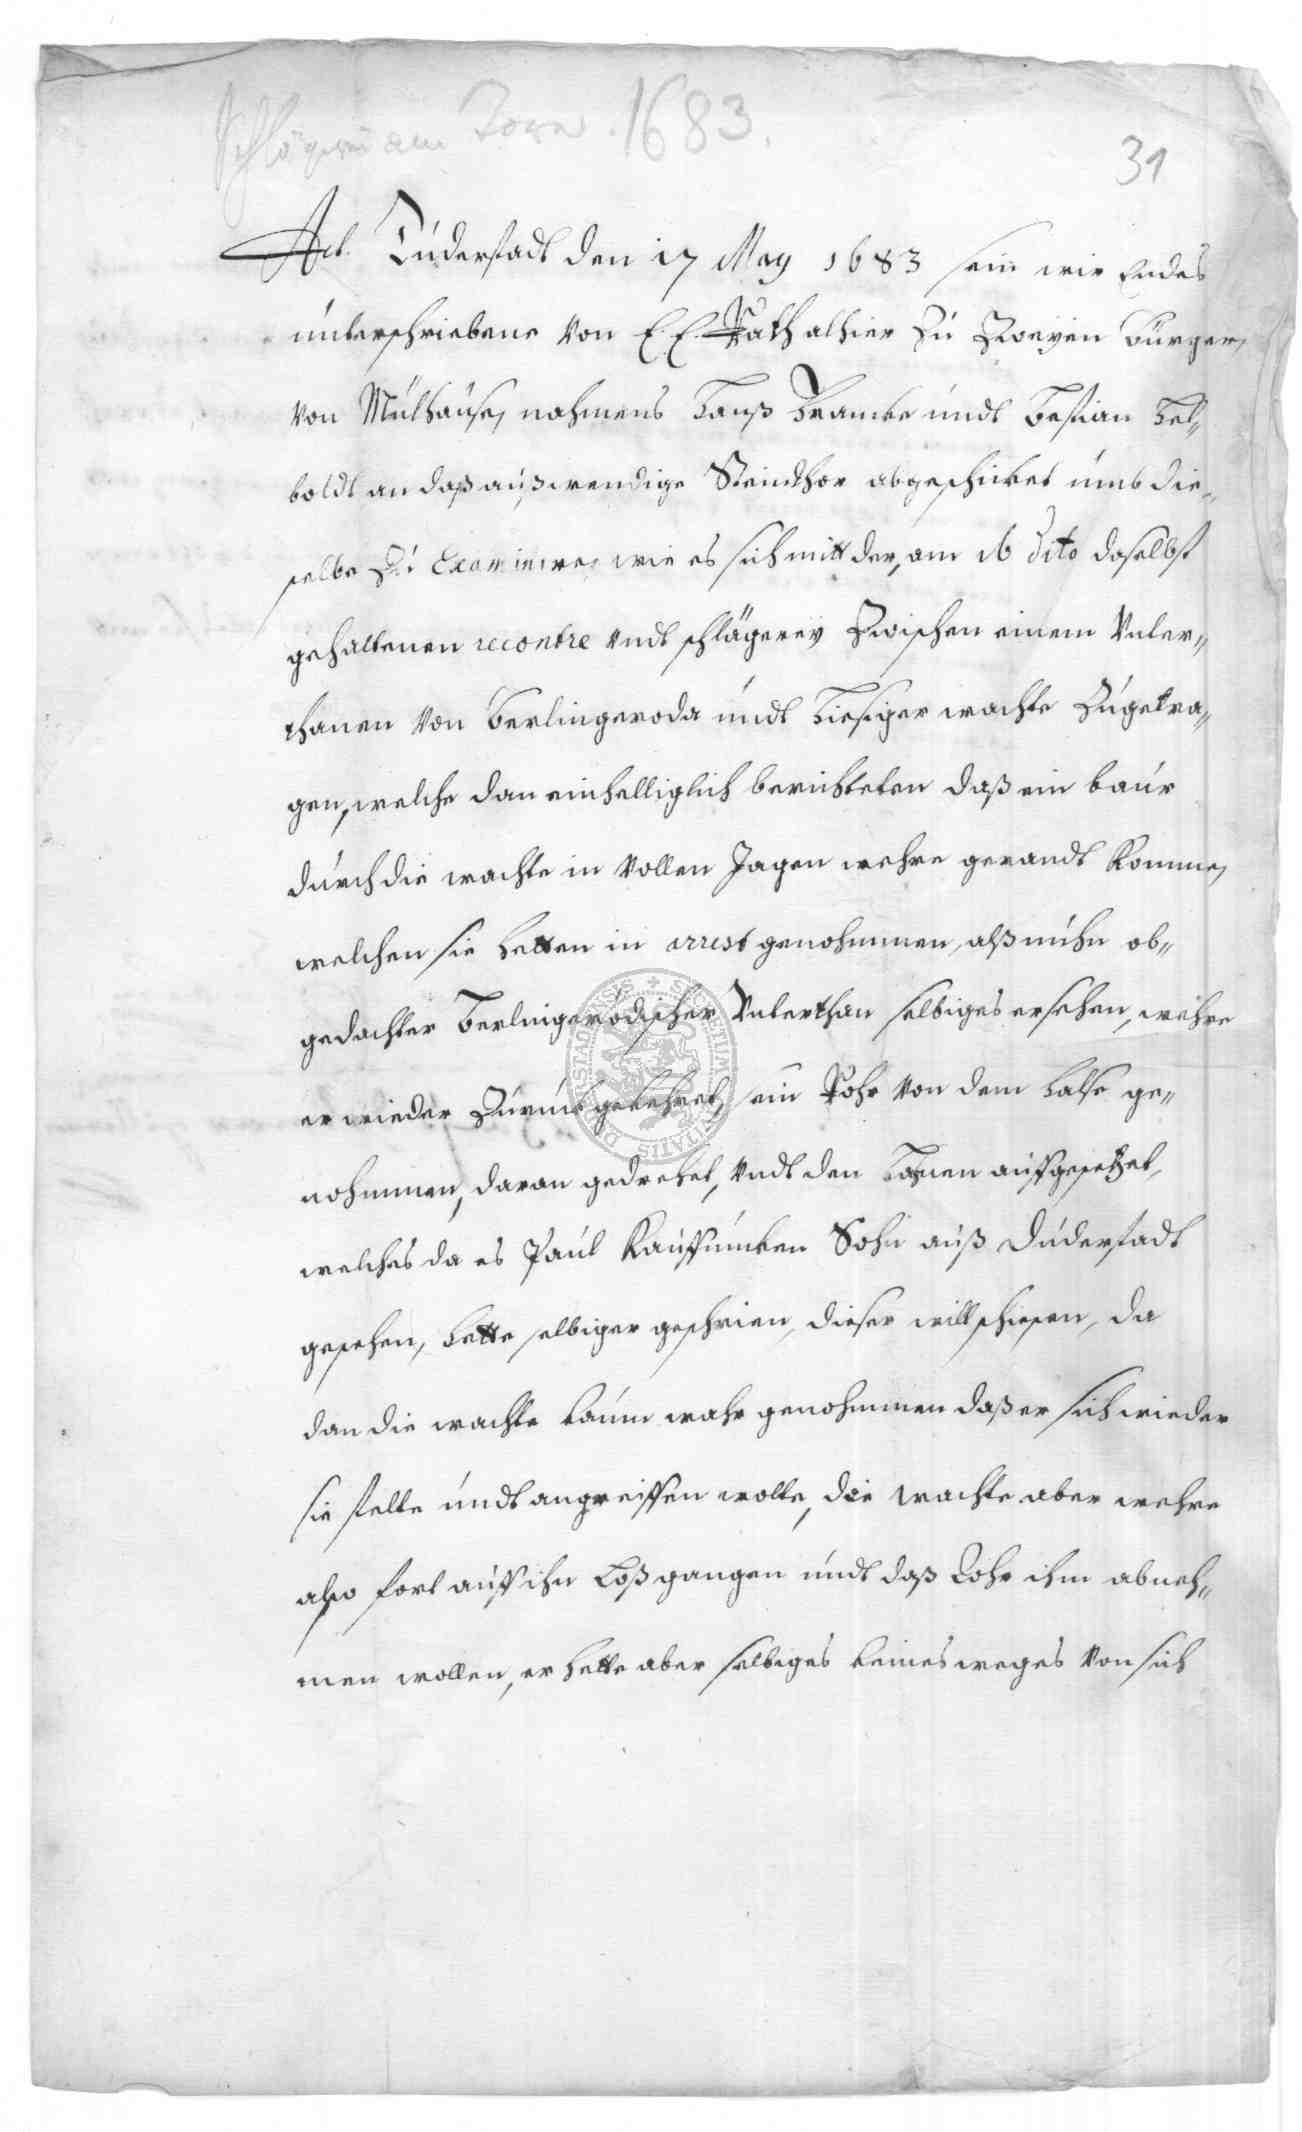 Schlägerei am Tore. 1683.
31
Act. Duderstadt den 17 May 1683 sein wir Endes
unterschriebene von E. E. Rath alhier zu Zweyen bürgern
von Mülhausen nahmens Hanß Bramke undt Bastian Hel„
boldt an daß außwendige Steinthor abgeschicket umb die„
selbe zu Examiniren wie es sich mitt der, am 16 dito daselbst
gehaltenen recontre undt schlägerey Zwischen einem Unter„
thanen von Berlingeroda undt hiesiger wachte Zugetra„
gen, welche dan einhelliglich berichteten daß ein baur
durch die wachte in vollen Jagen wehre gerandt kommen
welchen sie hetten in arrest genohmmen, alß nuhn ob„
gedachter Berlingerödischer Unterthan selbiges ersehen, wehre
er wieder Zurück gekehret, sein Rohr von dem halse ge„
nohmmen, daran gedrehet, undt den Hanen auffgesetzet,
welches da es Paul Kauffuncken Sohn auß Duderstadt
gesehen, hette selbiger geschrien, dieser will schiesen, da
dan die wachte kaum wahr genohmmen daß er sich wieder
sie stelte undt angreiffen wolte, die wachte aber wehre
also fort auff ihn loß gangen undt daß Rohr ihm abneh„
men wollen, er hette aber selbiges keines weges von sich
SECRETUM CIVITATIS DUDERSTADENSIS